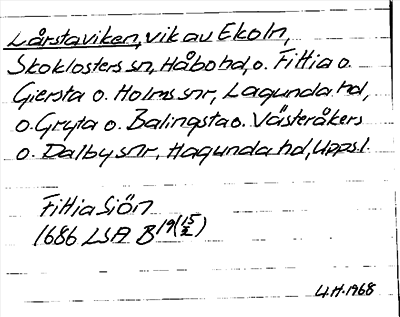 Lårstaviken, vik av Ekoln,
Skoklosters sn, Håbo hd, o. Fittia o.
Giersta o. Holms snr, Lagunda hd,
o. Gryta o. Balingsta o. Västeråkers
o. Dalby snr, Hagunda hd, Uppsl.
Fittia Siön
1686 LSA B 19 (15/2)
LH. 1968